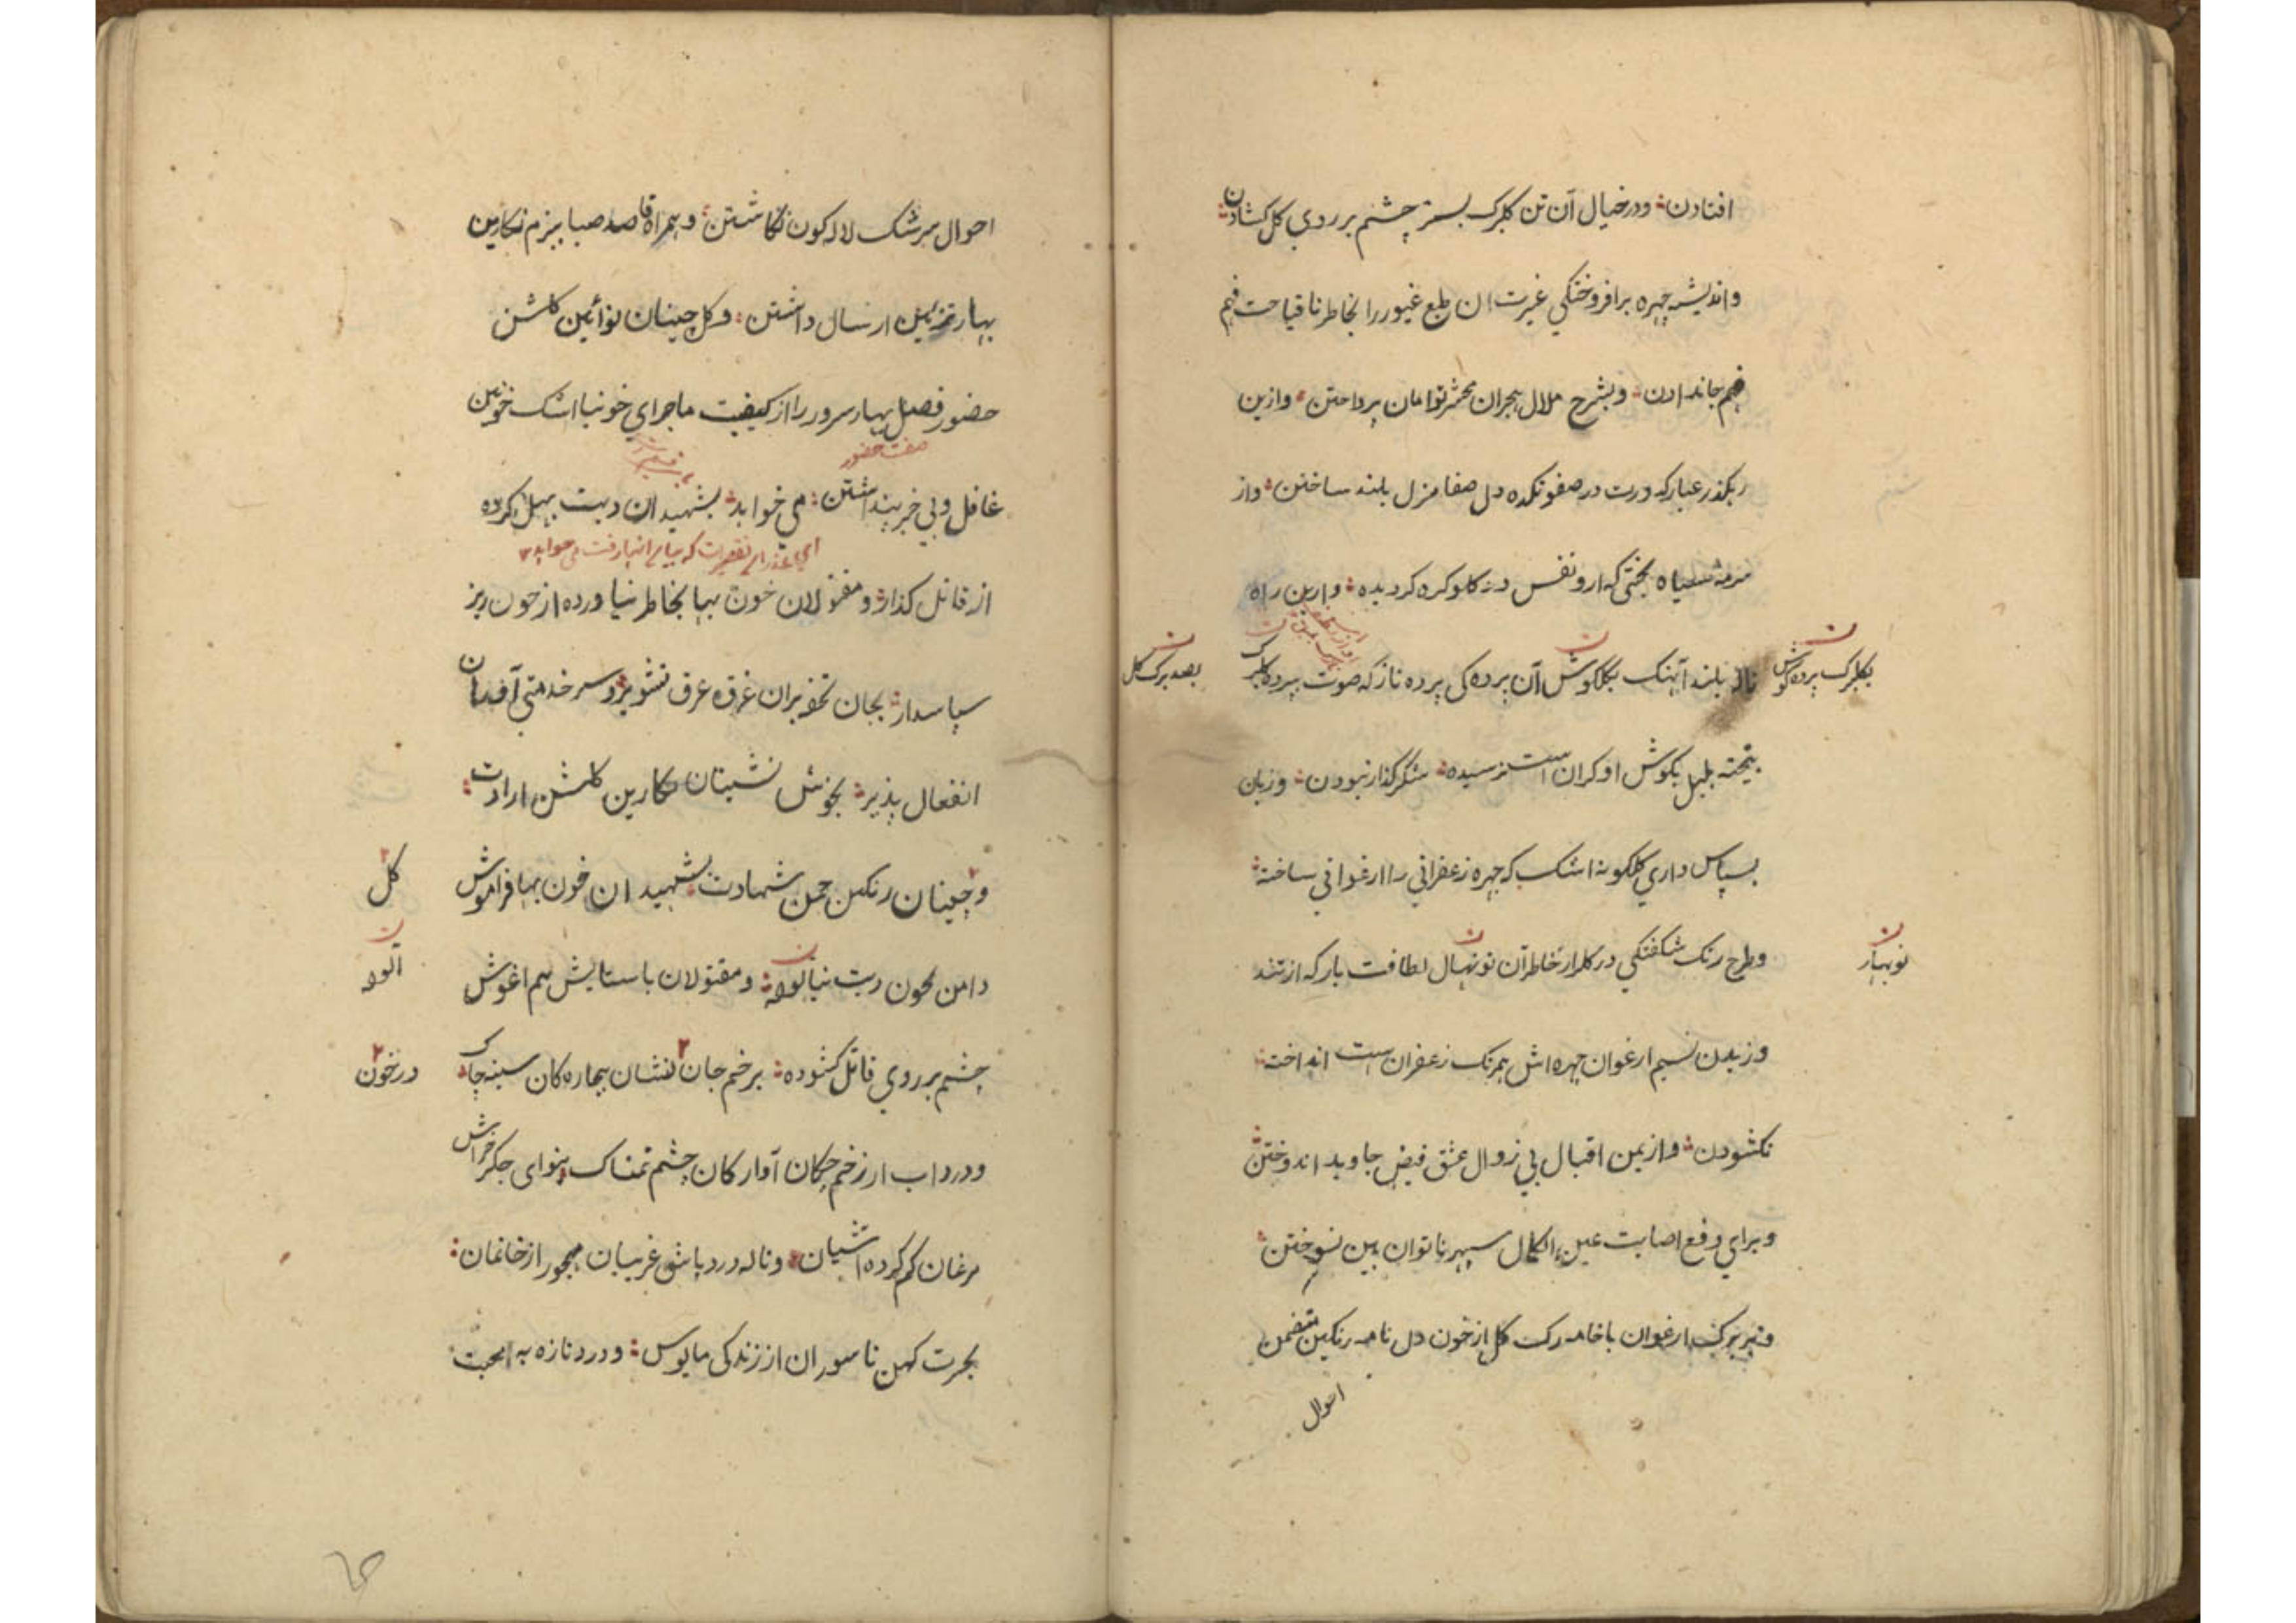 افتادن؛ و در خیال آن تن کلبرک بستر چشم بر روی کل کشادن؛
و اندیشه چهره برافروختکی غیرت ان طبع غیور را بخاطر نا قباحت فهم
فهم جا ندادن؛ و بشرح ملال هجران محشر توامان پرداختن؛ و ازین
رهکذر غبار کدورت در صفوتکده دل صفا منزل بلند ساختن؛ و از
سرمه سیاه بختی که ازو نفس در کلو کره کردیده؛ و ازین راه
ناله بلند آهنک بکلکوش آن پرده کی پرده ناز که صوت بپرده کلبرک
بکلبرک پرده کوش
بصد برک کل
بیخته بلبل بکوش او کران است نرسیده؛ شکر کذار نبودن؛ و زبان
بسپاس داری کلکونه اشک که چهره زعفرانی را ارغوانی ساخته؛
و طرح رنک شکفتکی در کلزار خاطر آن نونهال لطافت بار که از تند
نوبهار
وزیدن نسیم ارغوان چهره اش همرنک زعفران است انداخته؛
نکشودن؛ و از یمن اقبال بی زوال عشق فیض جاوید اندوختن؛
و برای دفع اصابت عین الکمال سپهر ناتوان بین نسوختن؛
و بر برک ارغوان با خامه رک کل از خون دل نامه رنکین متضمن
احوال
احوال سرشک لاله کون نکاشتن؛ و همراه قاصد صبا ببزم نکارین
بهار تزئین ارسال داشتن؛ و کل چینان نوائین کلشن
حضور فصل بهار سرور را از کیفیت ماجرای خونبا اشک خونین
صفت حضور
غافل و بی خبر پنداشتن؛ می خواهد؛ بشهیدان دیت بهل کرده
از قاتل کذار؛ و مقتولان خون بها بخاطر نیاورده از خون ریز
سپاسدار؛ بجان تحفه بران غرق عرق تشویر؛ و سر خدمتی آوران
انفعال پذیر؛ بخوش نشینان نکارین کلشن ارادت؛
و چینان رنکین چمن شهادت؛ بشهیدان خون بها فراموش
کل
دامن بخون دیت نیالوده؛ و مقتولان با ستایش هم اغوش
آلوده
چشم بر روی قاتل کشوده؛ بزخم جان نشان بیچاره کان سینه چاک
در خون
و درد اب از زخم چکان آواره کان چشم نمناک بنوای جکر خراش
مرغان کم کرده اشیان؛ و ناله درد پاش غریبان مهجور از خانمان؛
بحسرت کهن ناسوران از زندکی مایوس؛ و درد تازه به محبت